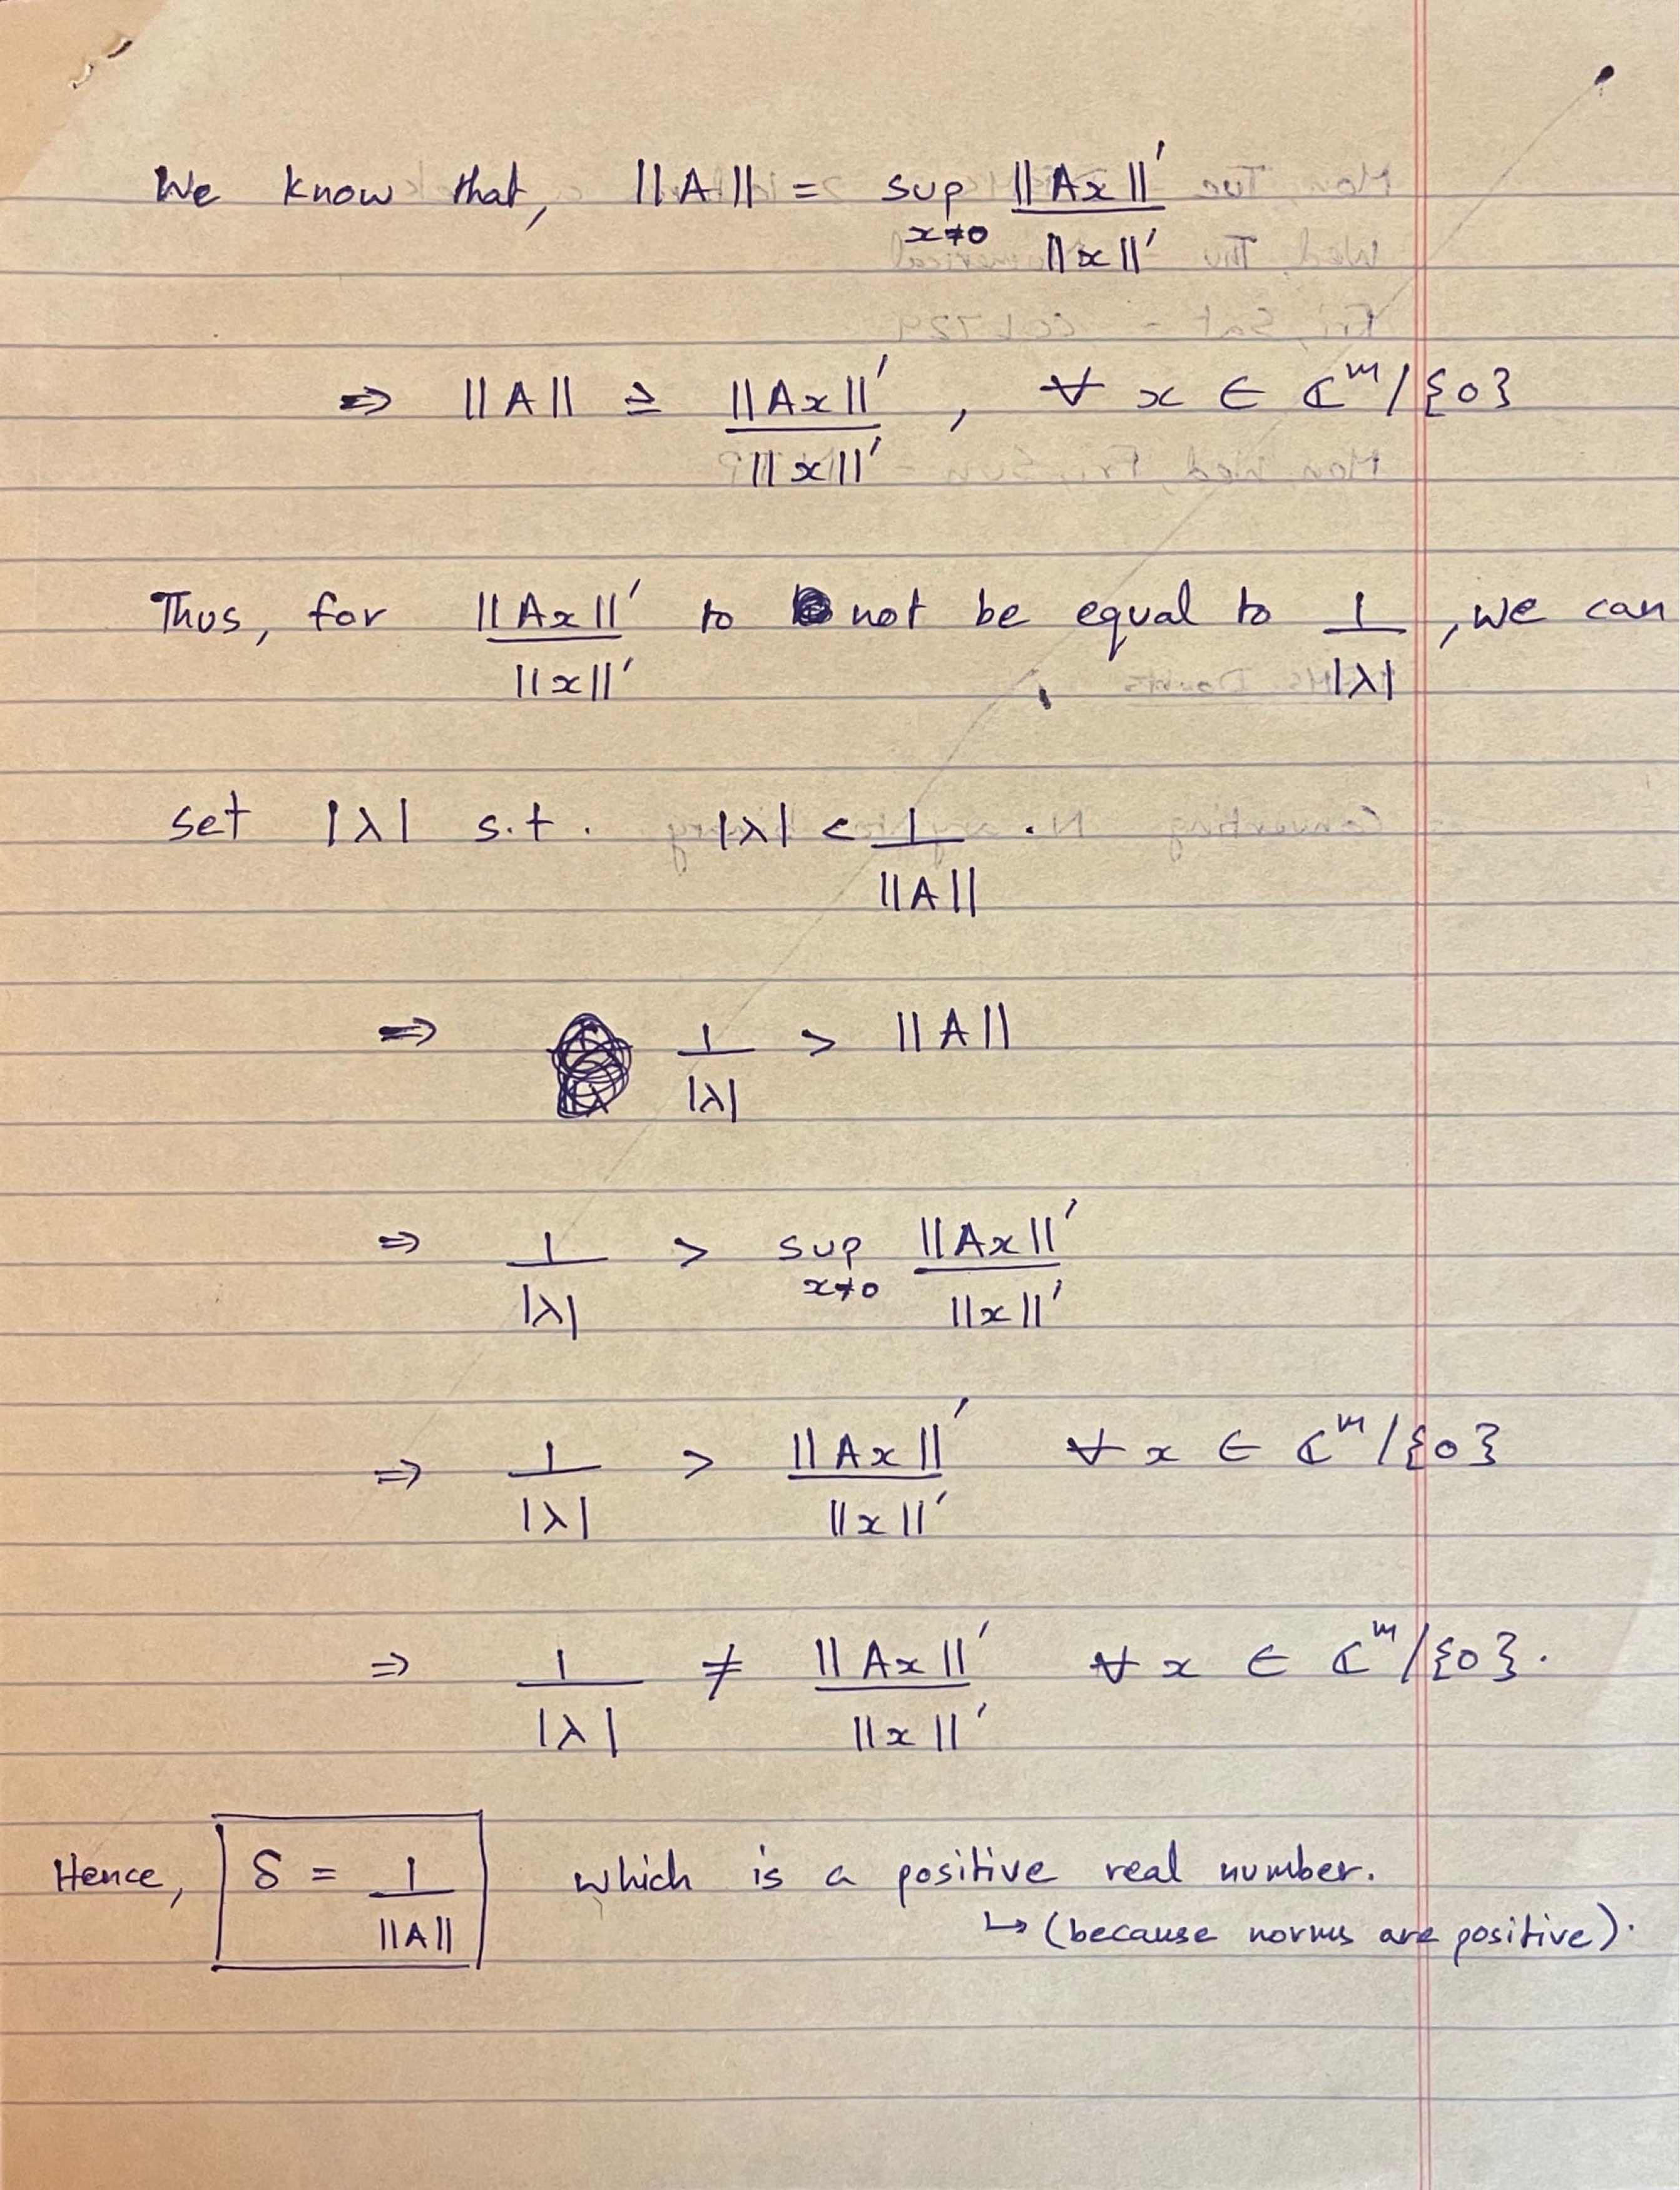 We know that, ||A|| = sup_{x≠0} ||Ax||' / ||x||'
⇒ ||A|| ≥ ||Ax||' / ||x||' , ∀ x ∈ ℂ^m / {0}
Thus, for ||Ax||' / ||x||' to not be equal to 1 / |λ| , we can
set |λ| s.t. |λ| < 1 / ||A|| .
⇒ 1 / |λ| > ||A||
⇒ 1 / |λ| > sup_{x≠0} ||Ax||' / ||x||'
⇒ 1 / |λ| > ||Ax||' / ||x||' ∀ x ∈ ℂ^m / {0}
⇒ 1 / |λ| ≠ ||Ax||' / ||x||' ∀ x ∈ ℂ^m / {0}.
Hence, δ = 1 / ||A|| which is a positive real number.
↳ (because norms are positive).